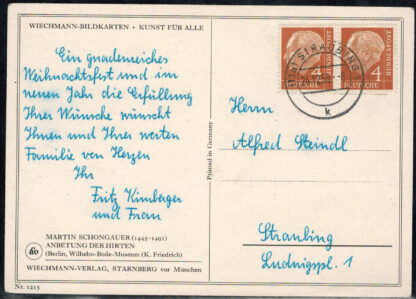 WIECHMANN-BILDKARTEN • KUNST FÜR ALLE
Ein gnadenreiches
Weihnachtsfest und im
neuen Jahr die Erfüllung
Ihrer Wünsche wünscht
Ihnen und Ihrer werten
Familie von Herzen
Ihr
Fritz Kimberger
und Frau
MARTIN SCHONGAUER (1445-1491)
ANBETUNG DER HIRTEN
(Berlin, Wilhelm-Bode-Museum (K. Friedrich)
WIECHMANN-VERLAG, STARNBERG vor München
Nr. 1215
Printed in Germany
STRAUBING
k
4
DEUTSCHE
BUNDESPOST
4
DEUTSCHE
BUNDESPOST
Herrn
Alfred Steindl
Straubing
Ludwigspl. 1